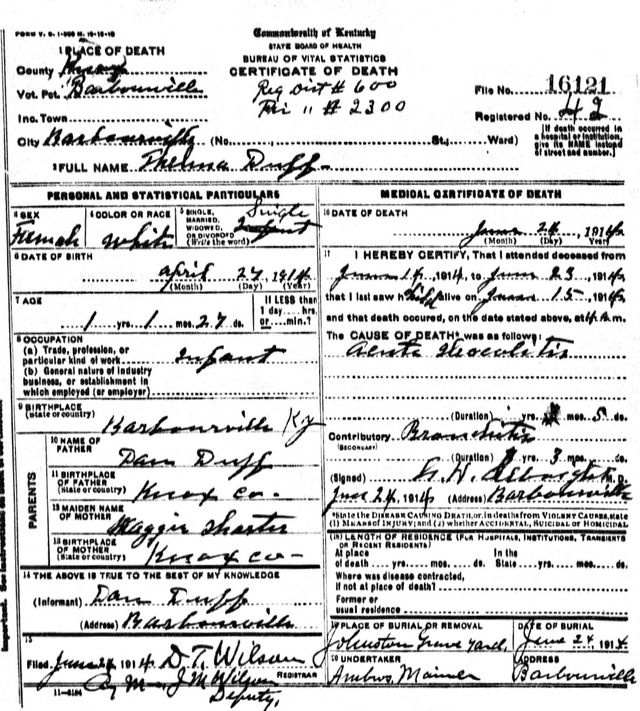 FORM V. S. 1-
Commonwealth of Kentucky
STATE BOARD OF HEALTH
BUREAU OF VITAL STATISTICS
CERTIFICATE OF DEATH
1 PLACE OF DEATH
County Knox
Vot. Pct. Barbourville
Inc. Town
City Barbourville (No. St.; Ward)
Reg Dist # 600
Pri " # 2300
File No. 16121
Registered No. 42
[If death occurred in a hospital or institution, give its NAME instead of street and number.]
2 FULL NAME Thelma Duff
PERSONAL AND STATISTICAL PARTICULARS
3 SEX
Female
4 COLOR OR RACE
White
5 SINGLE, MARRIED, WIDOWED, OR DIVORCED (Write the word)
Single
infant
6 DATE OF BIRTH
April 27, 1914
(Month) (Day) (Year)
7 AGE
1 yrs. 1 mos. 27 ds.
If LESS than 1 day....hrs. or....min.?
8 OCCUPATION
(a) Trade, profession, or particular kind of work Infant
(b) General nature of industry business, or establishment in which employed (or employer)
9 BIRTHPLACE
(State or country) Barbourville Ky
PARENTS
10 NAME OF FATHER Dan Duff
11 BIRTHPLACE OF FATHER (State or country) Knox Co
12 MAIDEN NAME OF MOTHER Maggie
13 BIRTHPLACE OF MOTHER (State or country) Knox Co
14 THE ABOVE IS TRUE TO THE BEST OF MY KNOWLEDGE
(Informant) Dan Duff
(Address) Barbourville
15
Filed June 24 1914 D. T. Wilson
REGISTRAR
By J M Wilson
Deputy,
11-5184
MEDICAL CERTIFICATE OF DEATH
16 DATE OF DEATH
June 24, 1914
(Month) (Day) (Year)
17 I HEREBY CERTIFY, That I attended deceased from
June 14 1914 to June 23, 1914
that I last saw h alive on June 15, 1914
and that death occured, on the date stated above, at 4 A.m.
The CAUSE OF DEATH* was as follows:
Acute Ileocolitis
(Duration) yrs. mos. 5 ds.
Contributory Bronchitis
(SECONDARY)
(Duration) yrs. 3 mos. ds.
(Signed) M.D.
June 24, 1914 (Address) Barbourville
*State the DISEASE CAUSING DEATH, or, in deaths from VIOLENT CAUSES, state (1) MEANS OF INJURY; and (2) whether ACCIDENTAL, SUICIDAL or HOMICIDAL
18 LENGTH OF RESIDENCE (FOR HOSPITALS, INSTITUTIONS, TRANSIENTS OR RECENT RESIDENTS)
At place of death.... yrs..... mos..... ds. In the State.... yrs..... mos..... ds.
Where was disease contracted, if not at place of death?
Former or usual residence
19 PLACE OF BURIAL OR REMOVAL
Johnston Grave yard
DATE OF BURIAL
June 24 1914
20 UNDERTAKER
ADDRESS
Barbourville
Important.